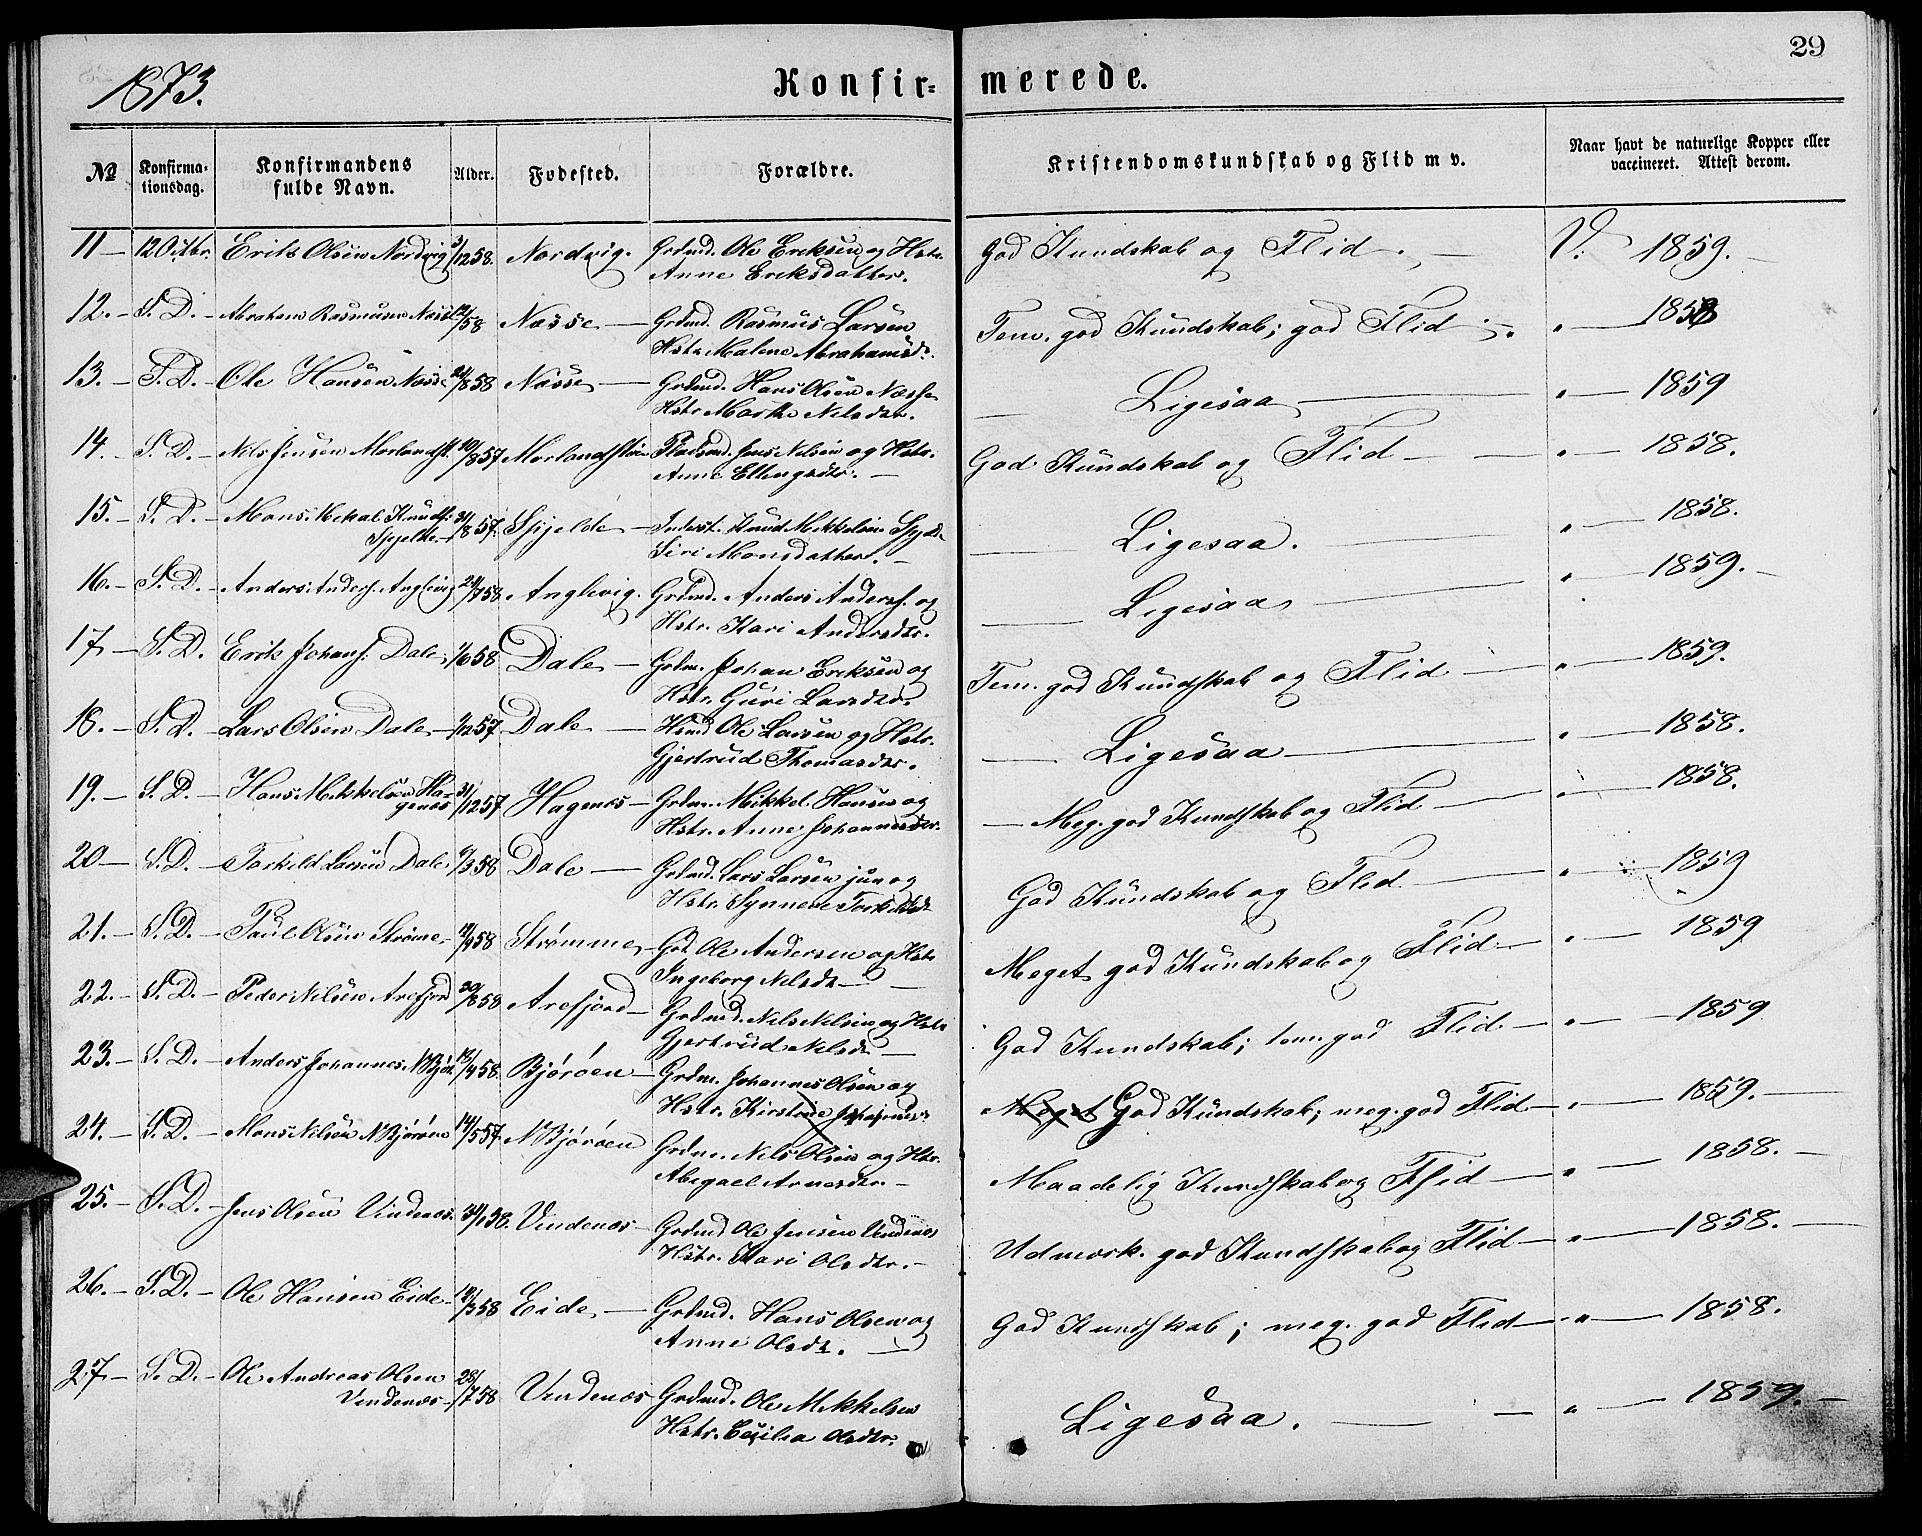 29
1873.
Konfir- merede.
№ Konfirma-tionsdag. Konfirmandens fulde Navn. Alder. Fodested. Forældre. Kristendomskundskab og Flid m v. Naar havt de naturlige Kopper eller vaccineret. Attest derom.
11 — 12 Octbr. Erik Olsen Nordvig 3/12 58. Nordvig. Grdmd. Ole Eriksen og Hstr. God Kundskab og Flid. — V. 1859. —
Anne Eriksdatter.
12. — S. D. — Abraham Rasmusen Næsse 12/ 58 Næsse — Grdmd. Rasmus Larsen Tem. god Kundskab; god Flid — " — 1858
Hstr. Malene Abrahamsdr.
13. — S. D. — Ole Hansen Næsse 24/8 58 Næsse — Grdmd. Hans Olsen Næsse — Ligesaa — " — 1859
Hstr. Marthe Nilsdtr.
14. — S. D. — Nils Jensen Morlandst. 10/8 57 Morlandstøen Pladsmd. Jens Nilsen og Hstr. God Kundskab og Flid — " — 1858.
Anne Ellingsdtr. —
15. — S. D. — Mons Mikal Knuds. 31/8 57. Spjelde — Inderst. Knud Mikkelsen Spjeld — Ligesaa. — " — 1858.
Spjelde — Siri Monsdatter. —
16. — S. D. — Anders Anders. Anglevig 24/7 58 Anglevig. Grdmd. Anders Anders. og — Ligesaa — " — 1859. —
Hstr. Kari Andersdtr.
17 — S. D. Erik Johans. Dale 1/6 58 Dale — Grdm. Johan Eriksen og Tem. god Kundskab og Flid — " — 1859.
Hstr. Guri Larsdtr.
18. — S. D. — Lars Olsen Dale — /12 57 Dale — Hsmd Ole Larsen og Hstr. — Ligesaa — " — 1858.
Gjertrud Thomasdtr.
19. — S. D. — Hans Mikkelsen Ha- 31/12 57 Hagenes — Grdm. Mikkel Hansen og — Meg. god Kundskab og Flid — " — 1858.
genes Hstr. Anne Johannesdtr.
20 — S. D. — Torkild Larsen Dale 6/3 58 Dale — Grdmd. Lars Larsen jun og God Kundskab og Flid — " — 1859
Hstr. Synneve Torkildsdr
21. — S. D. — Paul Olsen Strømme 12/9 58 Strømme — Grd. Ole Andersen og Hstr Meget god Kundskab og Flid — " — 1859
Ingeborg Nilsdr —
22. — S. D. — Peder Nilsen Arefjord 30/8 58 Arefjord — Grdmd. Nils Nilsen og Hstr God Kundskab; tem. god Flid — " — 1859
Gjertrud Nilsdr —
23. — S. D. — Anders Johannes. N Bjør. 13/4 58. Bjørøen — Grdm. Johannes Olsen og Meget God Kundskab; meg. god Flid — " — 1859. —
Hstr. Kirstine Johannesdr
24. — S. D. — Mons Nilsen N Bjørøen 14/5 57. N Bjørøen Grdm. Nils Olsen og Hstr. Maadelig Kundskab og Flid — " — 1858. —
Abegael Arnesdtr —
25. — S. D. — Jens Olsen Vindenæs. 31/1 58. Vindenæs — Grdmd Ole Jensen Vindenæs Udmærk. god Kundskab og Flid — " — 1858. —
Hstr. Kari Olsdtr. —
26. — S. D. — Ole Hansen Eide — 12/3 58 Eide — Grdmd. Hans Olsen og God Kundskab; meg. god Flid — " — 1858.
Anne Olsdr. —
27 — S. D. — Ole Andreas Olsen 28/7 58 Vindenæs Grdmd. Ole Mikkelsen Ligesaa. — " — 1859. —
Vindenæs — Hstr. Cecilia Olsdtr.